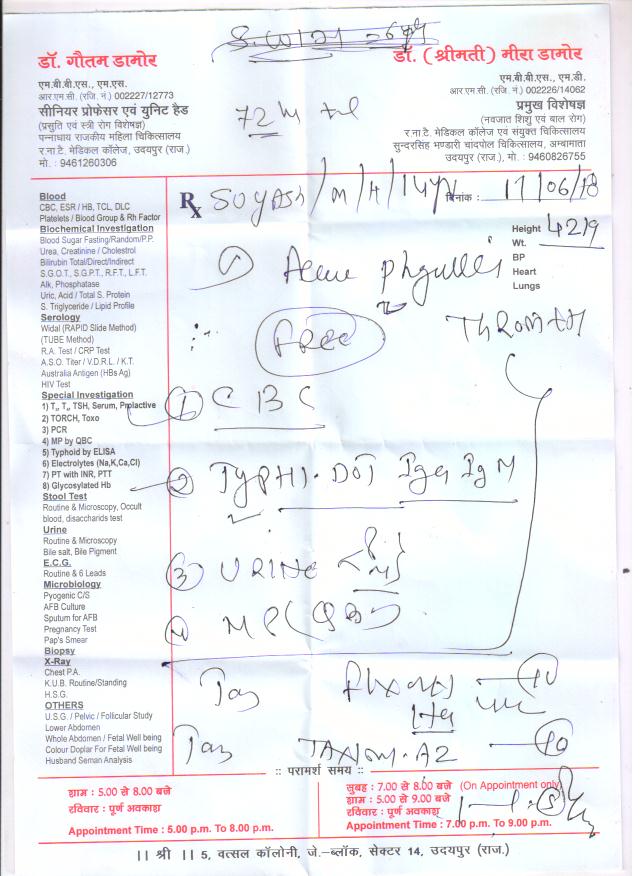 डॉ. गौतम डामोर
एम.बी.बी.एस., एम.एस.
आर.एम.सी. (रजि. नं.) 002227/12773
सीनियर प्रोफेसर एवं युनिट हैड
(प्रसुति एवं स्त्री रोग विशेषज्ञ)
पन्नाधाय राजकीय महिला चिकित्सालय
र.ना.टे. मेडिकल कॉलेज, उदयपुर (राज.)
मो. : 9461260306
डॉ. (श्रीमती) मीरा डामोर
एम.बी.बी.एस., एम.डी.
आर.एम.सी. (रजि. नं.) 002226/14062
प्रमुख विशेषज्ञ
(नवजात शिशु एवं बाल रोग)
र.ना.टे. मेडिकल कॉलेज एवं संयुक्त चिकित्सालय
सुन्दरसिंह भण्डारी चांदपोल चिकित्सालय, अम्बामाता
उदयपुर (राज.), मो. : 9460826755
72
Rx SUYASH / M / H / 14 दिनांक : 17/06/18
Height 42/9
Wt.
BP
Heart
Lungs
Blood
CBC, ESR / HB, TCL, DLC
Platelets / Blood Group & Rh Factor
Biochemical Investigation
Blood Sugar Fasting/Random/P.P.
Urea, Creatinine / Cholestrol
Bilirubin Total/Direct/Indirect
S.G.O.T., S.G.P.T., R.F.T., L.F.T.
Alk, Phosphatase
Uric, Acid / Total S. Protein
S. Triglyceride / Lipid Profile
Serology
Widal (RAPID Slide Method)
(TUBE Method)
R.A. Test / CRP Test
A.S.O. Titer / V.D.R.L. / K.T.
Australia Antigen (HBs Ag)
HIV Test
Special Investigation
1) T3, T4, TSH, Serum, Prolactive
2) TORCH, Toxo
3) PCR
4) MP by QBC
5) Typhoid by ELISA
6) Electrolytes (Na,K,Ca,Cl)
7) PT with INR, PTT
8) Glycosylated Hb
Stool Test
Routine & Microscopy, Occult
blood, disaccharids test
Urine
Routine & Microscopy
Bile salt, Bile Pigment
E.C.G.
Routine & 6 Leads
Microbiology
Pyogenic C/S
AFB Culture
Sputum for AFB
Pregnancy Test
Pap's Smear
Biopsy
X-Ray
Chest P.A.
K.U.B. Routine/Standing
H.S.G.
OTHERS
U.S.G. / Pelvic / Follicular Study
Lower Abdomen
Whole Abdomen / Fetal Well being
Colour Doplar For Fetal Well being
Husband Seman Analysis
Free
① CBC
② TYPHI-DOT IgG IgM
③ URINE
④ MP (QBC)
TAXIM-AZ 10
:: परामर्श समय ::
शाम : 5.00 से 8.00 बजे
रविवार : पूर्ण अवकाश
Appointment Time : 5.00 p.m. To 8.00 p.m.
सुबह : 7.00 से 8.00 बजे (On Appointment only)
शाम : 5.00 से 9.00 बजे
रविवार : पूर्ण अवकाश
Appointment Time : 7.00 p.m. To 9.00 p.m.
।। श्री ।। 5, वत्सल कॉलोनी, जे.-ब्लॉक, सेक्टर 14, उदयपुर (राज.)